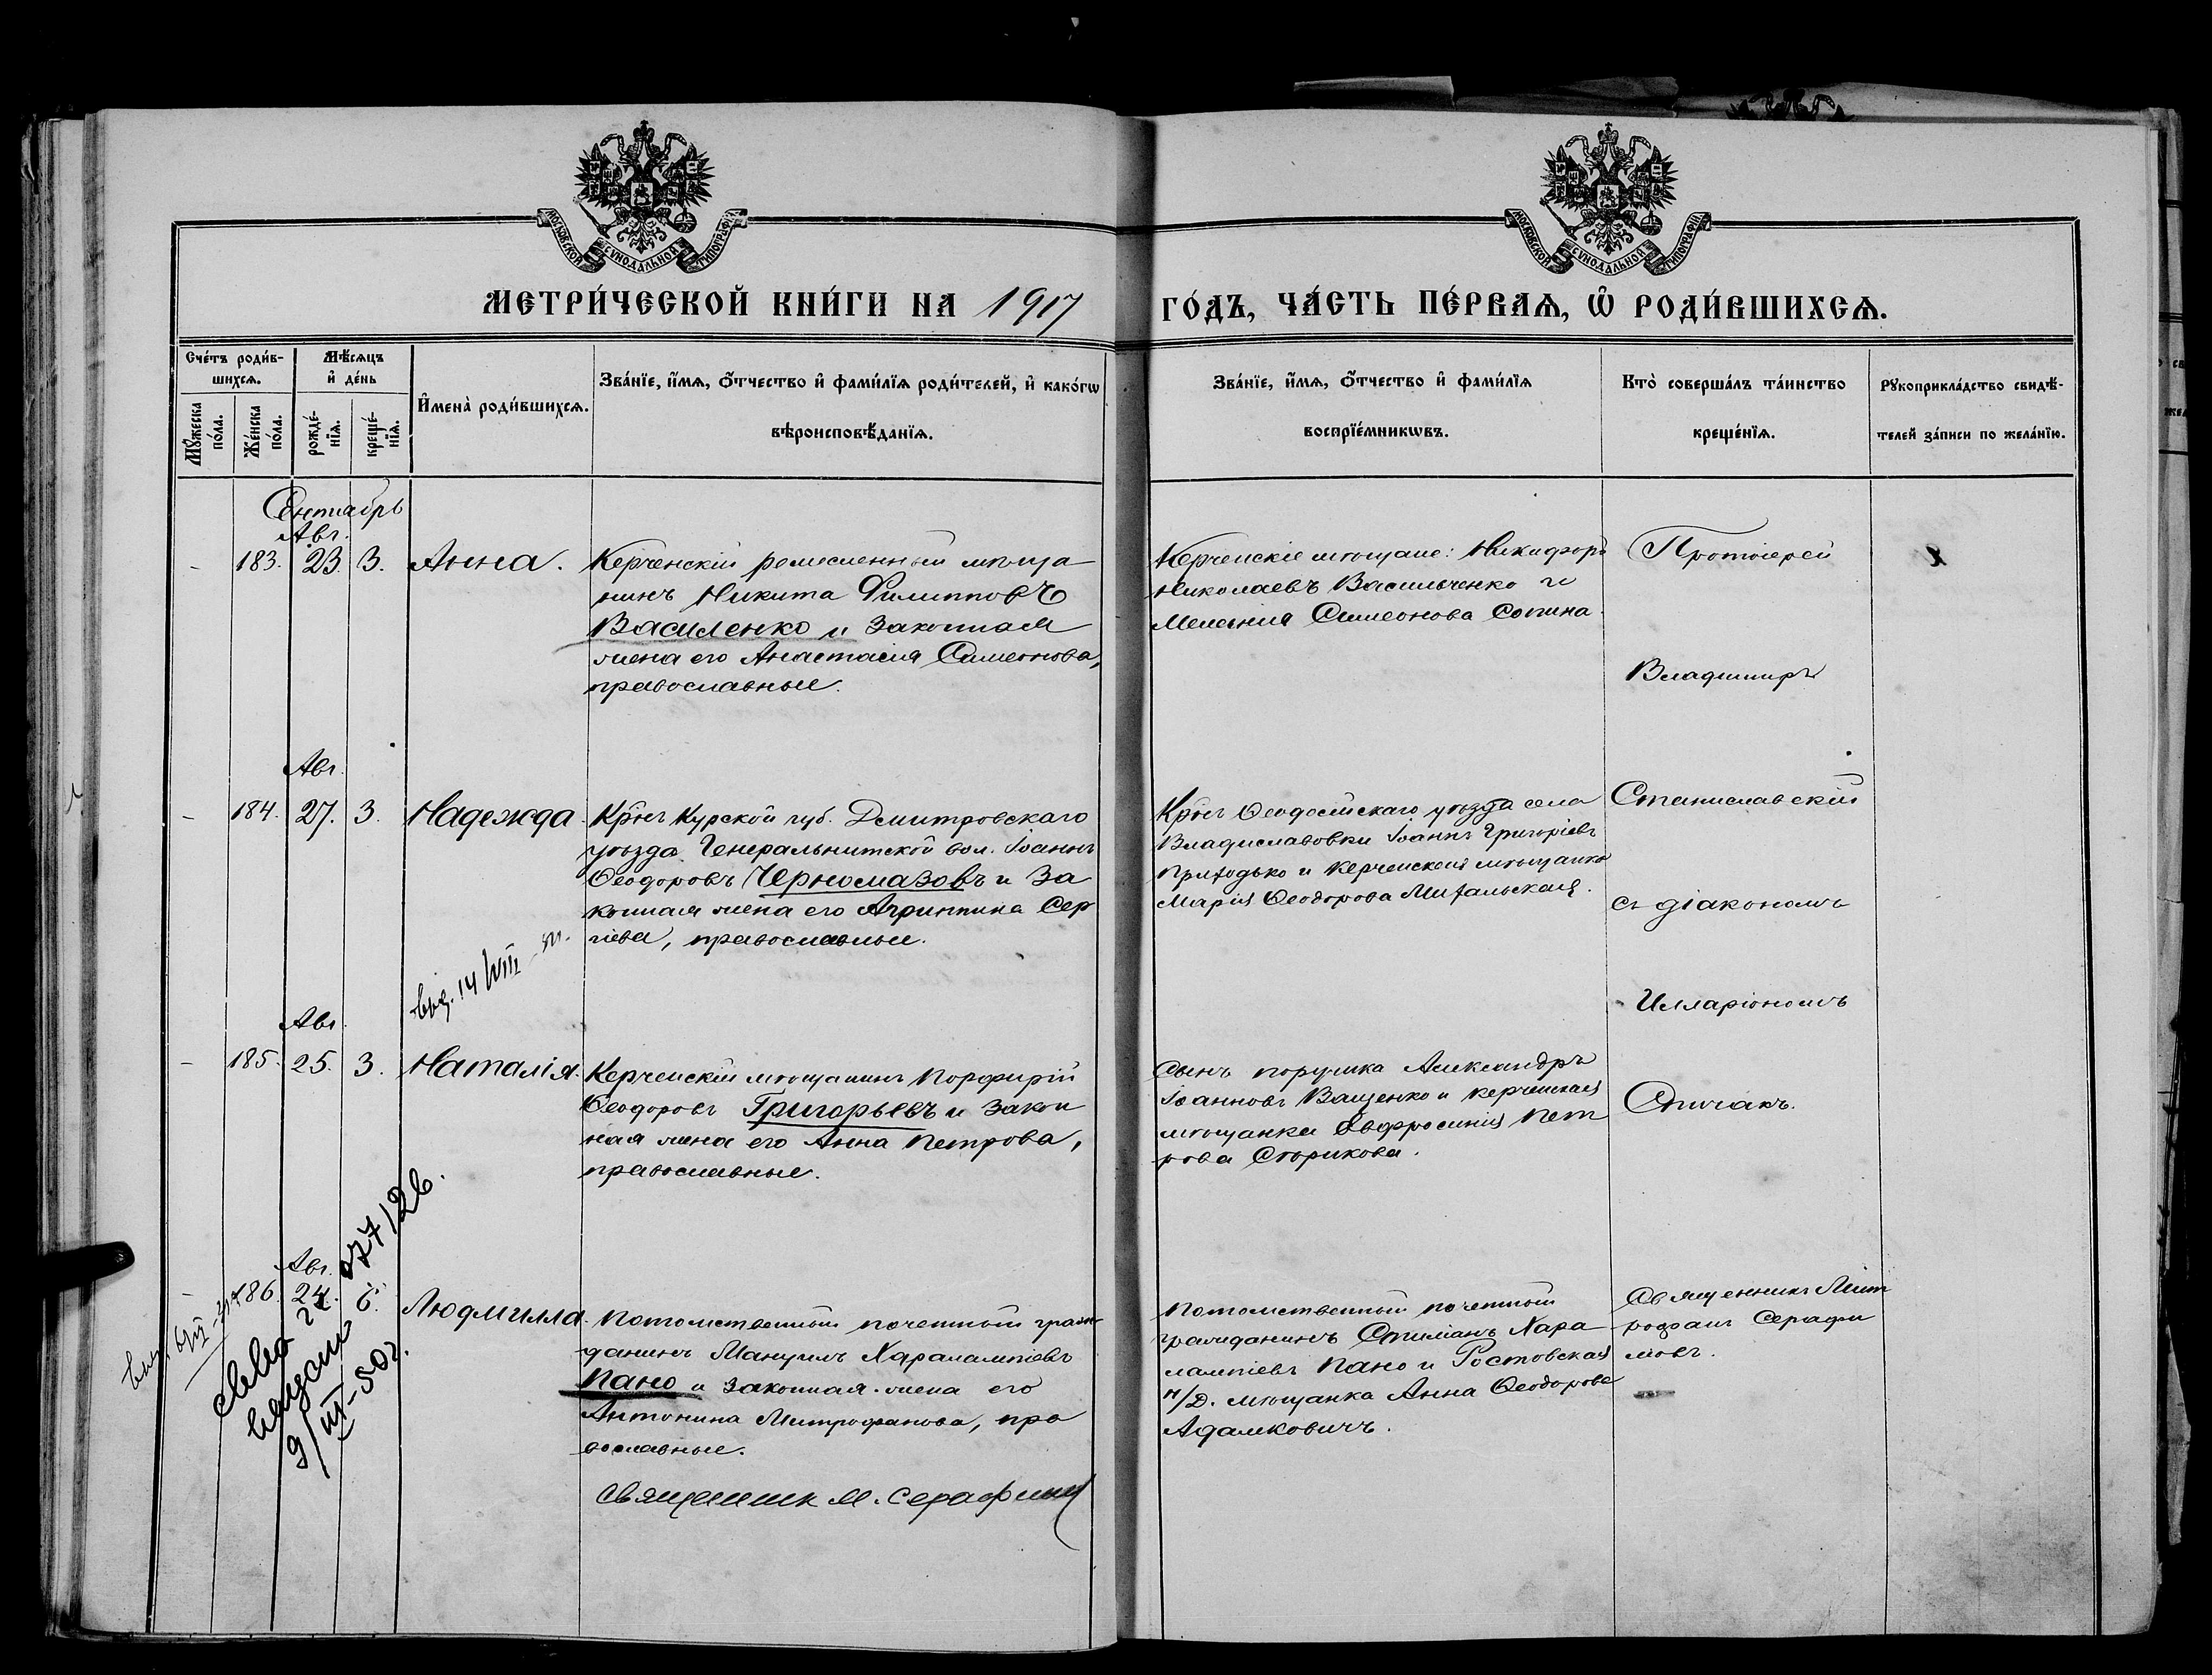 МОСКОВСКОЙ СѴНОДАЛЬНОЙ ТИПОГРАФІИ
МОСКОВСКОЙ СѴНОДАЛЬНОЙ ТИПОГРАФІИ
МЕТРИ́ЧЕСКОЙ КНИ́ГИ НА 1917 ГО́ДЪ, ЧА́СТЬ ПЕ́РВАѦ, Ѡ҆ РОДИ́ВШИХСѦ.
Сче́тъ роди́в-
шихсѧ.
Мꙋ́жеска
по́ла.
Же́нска
по́ла.
Мѣ́сѧцъ
и҆ де́нь
рожде́-
нїѧ.
креще́-
нїѧ.
И҆мена̀ роди́вшихсѧ.
Зва́нїе, и҆́мѧ, ѻ҆́тчество и҆ фами́лїѧ роди́телей, и҆ како́гѡ
вѣроисповѣ́данїѧ.
Зва́нїе, и҆́мѧ, ѻ҆́тчество и҆ фами́лїѧ
воспрїе́мникѡвъ.
Кто̀ соверша́лъ та́инство
креще́нїѧ.
Рꙋкоприкла́дство свидѣ́-
телей за́писи по жела́нїю.
Сентябрь
Авг.
- 183. 23. 3. Анна.
Керченскій ремесленный мѣща
нинъ Никита Филипповъ
Василенко и законная
жена его Анастасія Симеонова,
православные.
Керченскіе мѣщане: Никифоръ
Николаевъ Васильченко и
Меланія Симеонова Сопина.
Протоіерей
Владиміръ
Авг.
- 184. 27. 3. Надежда.
Кр͠нъ Курской губ. Дмитровскаго
уѣзда. Генеральнитской вол. Іоаннъ
Ѳеодоровъ Черномазовъ и за
конная жена его Агриппина Сер
гіева, православные.
Кр͠нъ Ѳеодосійскаго уѣзда села
Владиславовки Іоаннъ Григоріевъ
Приходько и керченская мѣщанка
Марія Ѳеодорова Михальская.
Станиславскій
съ діакономъ
Илларіономъ
Спичакъ.
выд. 14/VIII
Авг.
- 185. 25. 3. Наталія.
Керченскій мѣщанинъ Порфирій
Ѳеодоровъ Григорьевъ и закон
ная жена его Анна Петрова,
православные.
Сынъ поручика Александръ
Іоанновъ Ващенко и керченская
мѣщанка Евфросинія Пет
рова Сторикова.
Авг.
- 186. 24. 6. Людмилла.
Потомственный почетный граж
данинъ Мануилъ Харалампіевъ
Пано и законная жена его
Антонина Митрофанова, пра
вославные.
Потомственный почетный
гражданинъ Стиліанъ Хара
лампіевъ Пано и Ростовская
н/Д. мѣщанка Анна Ѳеодорова
Адамковичъ.
Священникъ Мит
рофанъ Серафи
мовъ.
выдано
9/III-50г.
Священник М. Серафимов